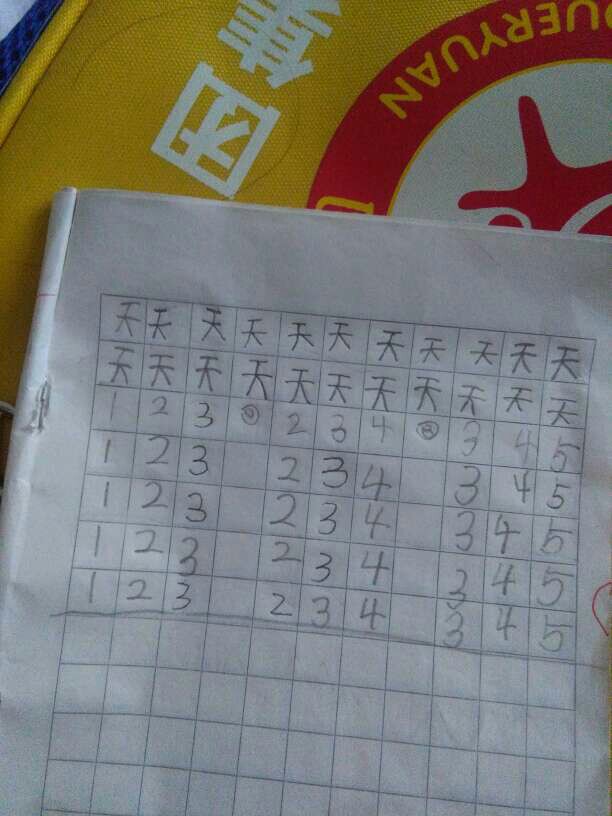 集团
UERYUAN
天 天 天 天 天 天 天 天 天 天 天
天 天 天 天 天 天 天 天 天 天 天
1 2 3 2 3 4 3 4 5
1 2 3 2 3 4 3 4 5
1 2 3 2 3 4 3 4 5
1 2 3 2 3 4 3 4 5
1 2 3 2 3 4 3 4 5